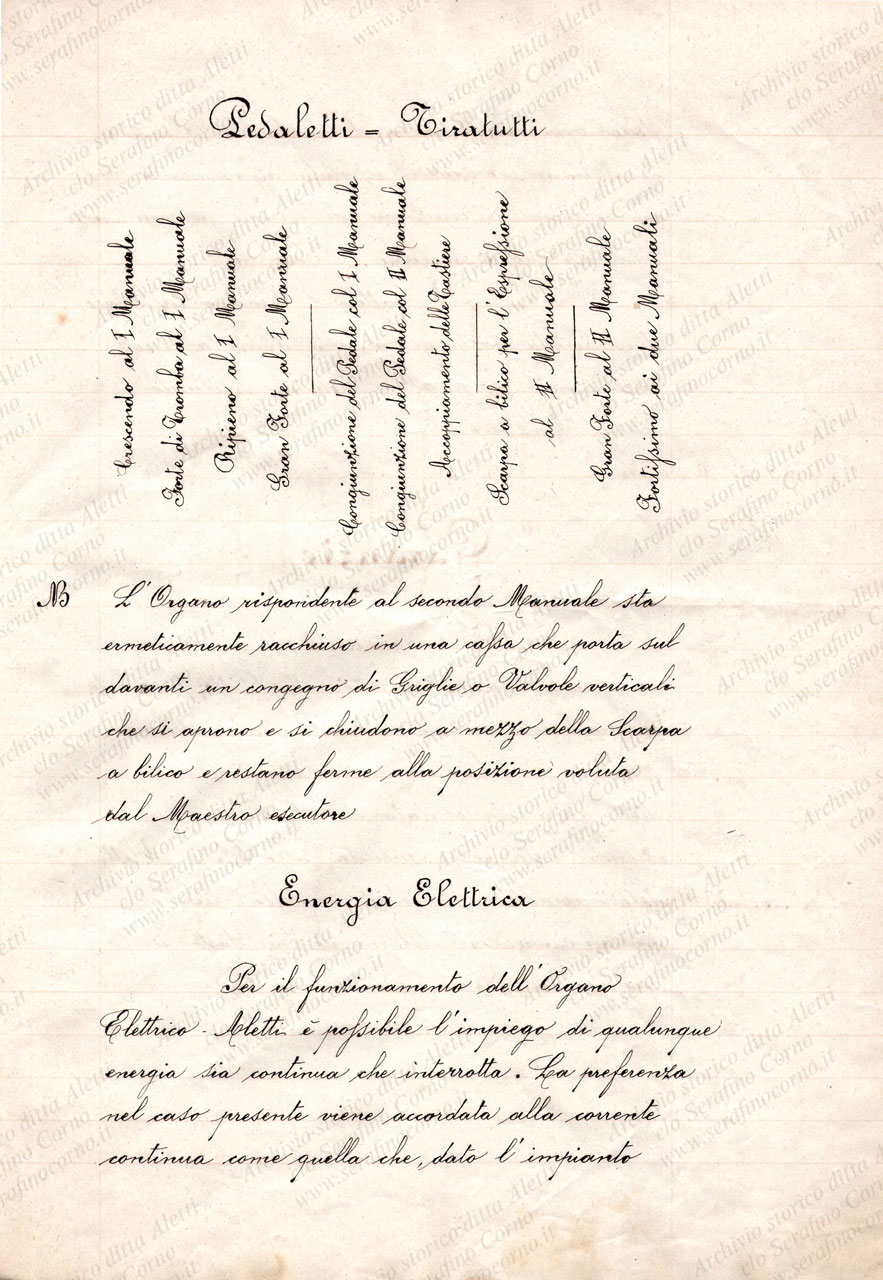 Pedaletti = Tiratutti
Crescendo al I Manuale
Forte di Tromba al I Manuale
Ripieno al I Manuale
Gran Forte al I Manuale
Congiunzione del Pedale col I Manuale
Congiunzione del Pedale col II Manuale
Accoppiamento delle Tastiere
Scarpa a bilico per l'Espressione
al II Manuale
Gran Forte al II Manuale
Fortissimo ai due Manuali
NB L'Organo rispondente al secondo Manuale sta
ermeticamente racchiuso in una cassa che porta sul
davanti un congegno di Griglie o Valvole verticali
che si aprono e si chiudono a mezzo della Scarpa
a bilico e restano ferme alla posizione voluta
dal Maestro esecutore
Energia Elettrica
Per il funzionamento dell'Organo
Elettrico - Aletti è possibile l'impiego di qualunque
energia sia continua che interrotta. La preferenza
nel caso presente viene accordata alla corrente
continua come quella che, dato l'impianto
Archivio storico ditta Aletti
c/o Serafino Corno
www.serafinocorno.it